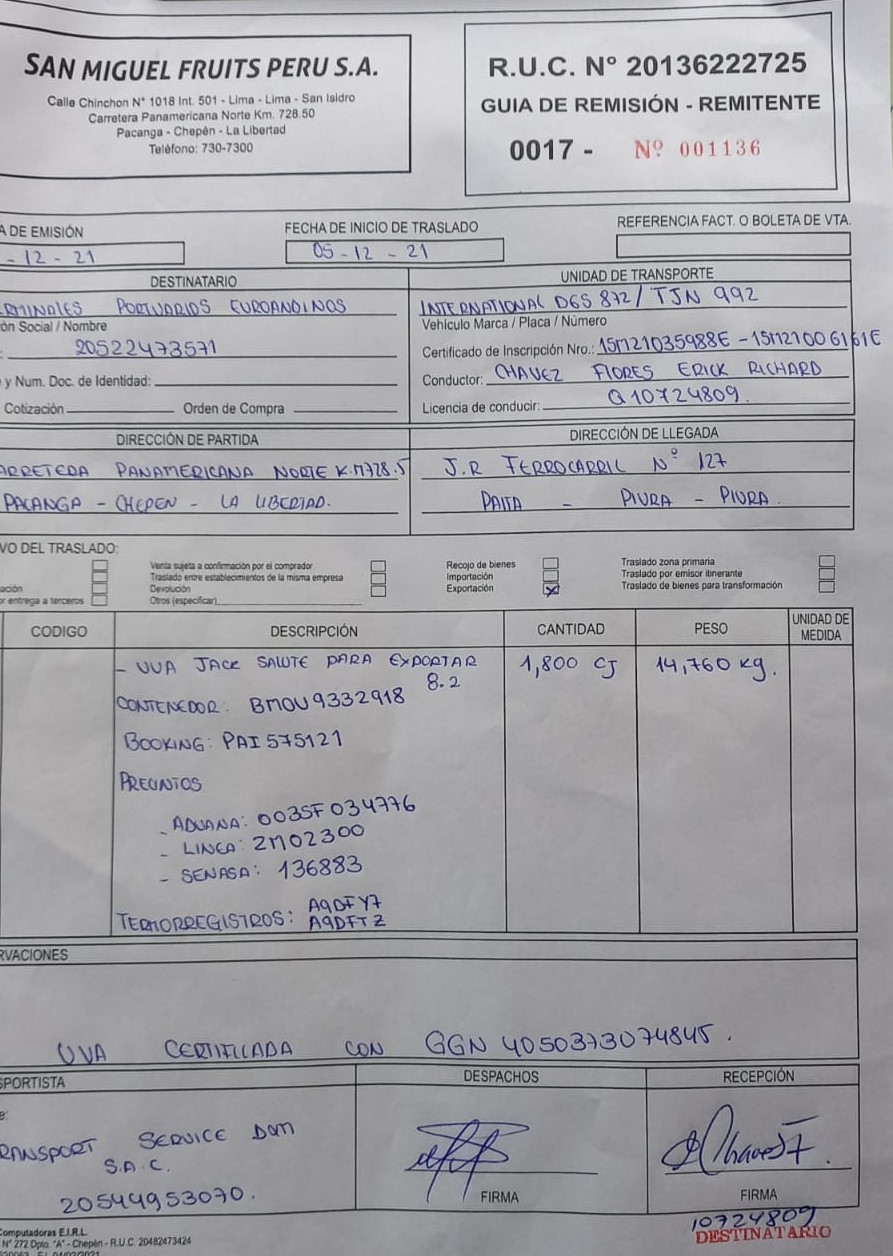 SAN MIGUEL FRUITS PERU S.A.
Calle Chinchon N° 1018 Int. 501 - Lima - Lima - San Isidro
Carretera Panamericana Norte Km. 728.50
Pacanga - Chepén - La Libertad
Teléfono: 730-7300
R.U.C. N° 20136222725
GUIA DE REMISIÓN - REMITENTE
0017 - Nº 001136
A DE EMISIÓN
- 12 - 21
FECHA DE INICIO DE TRASLADO
05 - 12 - 21
REFERENCIA FACT. O BOLETA DE VTA.
DESTINATARIO
RMINALES PORTUARIOS EUROANDINOS
ón Social / Nombre
20522473571
y Num. Doc. de Identidad:
Cotización Orden de Compra
UNIDAD DE TRANSPORTE
INTERNATIONAL D6S 872 / TJN 992
Vehículo Marca / Placa / Número
Certificado de Inscripción Nro.: 15M21035988E - 15M21006161E
Conductor: CHAVEZ FLORES ERICK RICHARD
Licencia de conducir: Q10724809.
DIRECCIÓN DE PARTIDA
ARRETERA PANAMERICANA NORTE K.M728.5
PACANGA - CHEPEN - LA LIBERTAD.
DIRECCIÓN DE LLEGADA
J.R FERROCARRIL Nº 127
PAITA - PIURA - PIURA.
VO DEL TRASLADO:
ación
or entrega a terceros
Venta sujeta a confirmación por el comprador
Traslado entre establecimientos de la misma empresa
Devolución
Otros (especificar)
Recojo de bienes
Importación
Exportación X
Traslado zona primaria
Traslado por emisor itinerante
Traslado de bienes para transformación
CODIGO DESCRIPCIÓN CANTIDAD PESO UNIDAD DE MEDIDA
- UVA JACK SALUTE PARA EXPORTAR 1,800 CJ 14,760 Kg.
8.2
CONTENEDOR: BMOU9332918
BOOKING: PAI575121
PRECINTOS
- ADUANA: 003SF034776
- LINEA: ZM02300
- SENASA: 136883
TERMORREGISTROS: A9DFY7
A9DFTZ
RVACIONES
UVA CERTIFICADA CON GGN 4050373074845.
SPORTISTA
e:
RANSPORT SERVICE D&M
S.A.C.
20544953070.
DESPACHOS
FIRMA
RECEPCIÓN
FIRMA
10724809
DESTINATARIO
Computadoras E.I.R.L.
N° 272 Dpto. "A" - Chepén - R.U.C. 20482473424